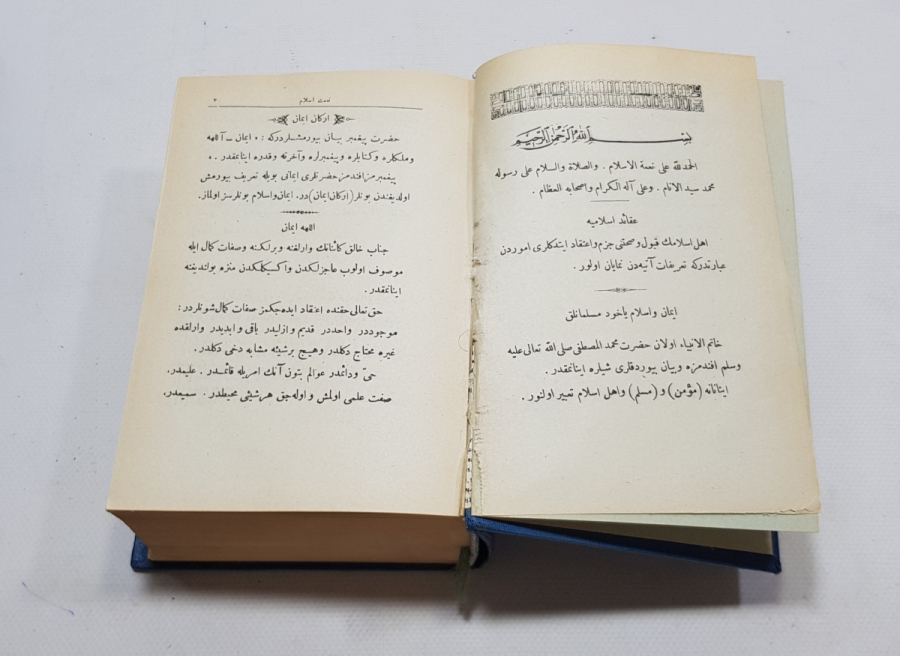 بسم الله الرحمن الرحيم
الحمد لله على نعمة الاسلام . والصلاة والسلام على رسوله
محمد سيد الانام . وعلى آله الكرام واصحابه العظام .
عقائد اسلاميه
اهل اسلامك قبول وصحتنى جزم واعتقاد ايتدكلرى اموردن
عبارتدركه تعريفات آتيه‌دن نمايان اولور .
ايمان واسلام ياخود مسلمانلق
خاتم الانبياء اولان حضرت محمد المصطفى صلى الله تعالى عليه
وسلم افندمزه وبيان بيوردقلرى شيلره اينانمقدر .
اينانانه (مؤمن) و (مسلم) واهل اسلام تعبير اولنور .
نعمت اسلام ٢
اركان ايمان
حضرت پيغمبر بيان بيورمشلردركه : « ايمان ــ آللهه
وملكلره وكتابلره وپيغمبرلره وآخرته وقدره اينانمقدر . »
پيغمبرمز افندمز حضرتلرى ايمانى بويله تعريف بيورمش
اولديغندن بونلر (اركان ايمان) در. ايمان واسلام بونلرسز اولماز.
اللهه ايمان
جناب خالق كائناتك وارلغنه وبرلكنه وصفات كمال ايله
موصوف اولوب عاجزلكدن واكسيكلكدن منزه بولنديغنه
اينانمقدر.
حق تعالى حقنده اعتقاد ايده‌جكمز صفات كمال شونلردر :
موجوددر واحددر قديم وازليدر باقى وابديدر وارلقده
غيره محتاج دكلدر وهيچ برشيئه مشابه دخى دكلدر.
حىّ ودائمدر عوالم بتون آنك امريله قائمدر . عليمدر،
صفت علمى اولمش و اوله‌جق هرشيئى محيطدر . سميعدر،